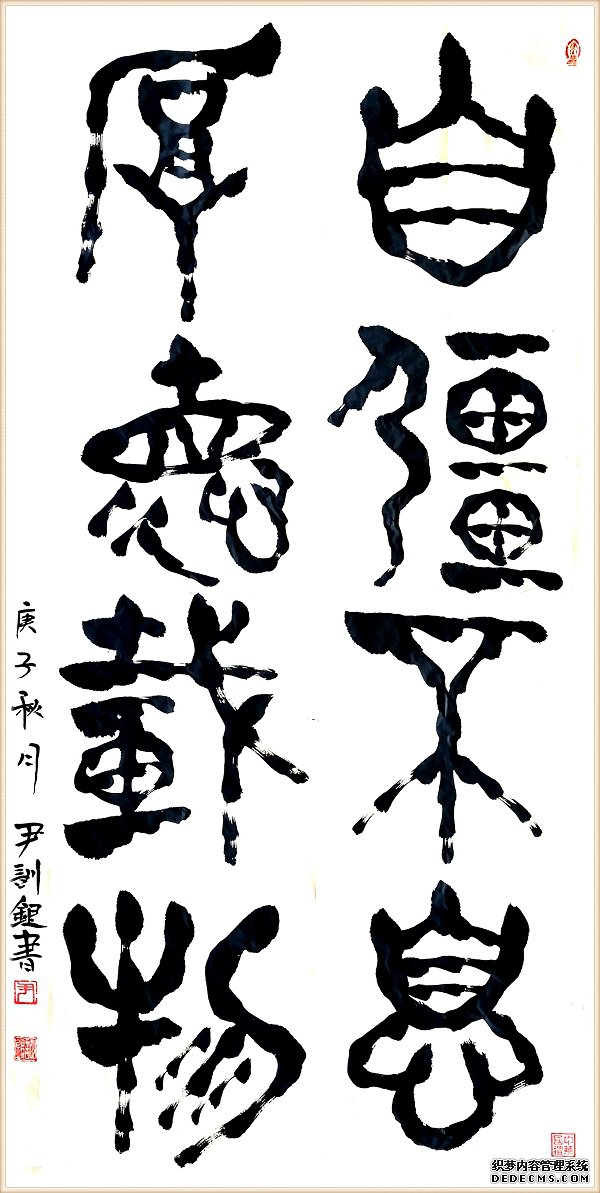 自彊不息
厚德載物
庚子秋月 尹訓鋥書
织梦内容管理系统
DEDECMS.COM